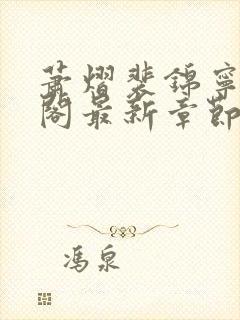 萧熠裴锦宁
阁最新章节
冯泉